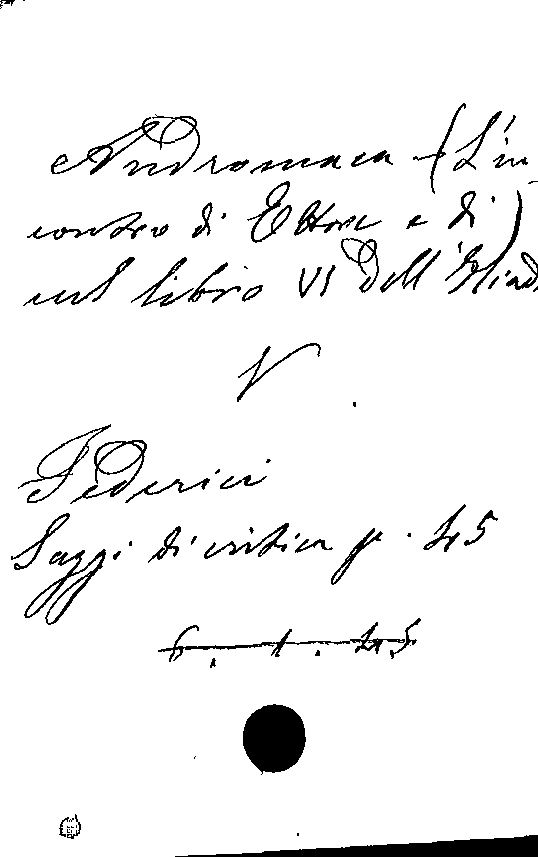 Andromaca - (L'in
contro di Ettore e di)
nel libro VI dell'Iliad
V.
Federici
Saggi di critica p. 45
6. 1. 45